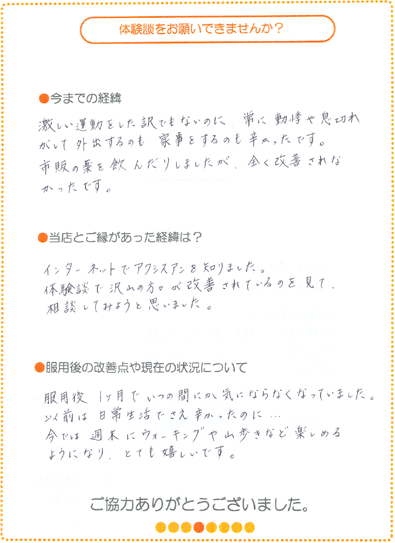 体験談をお願いできませんか？
●今までの経緯
激しい運動をした訳でもないのに、常に動悸や息切れ
がして外出するのも家事をするのも辛かったです。
市販の薬を飲んだりしましたが、全く改善されな
かったです。
●当店とご縁があった経緯は？
インターネットでアクシスアンを知りました。
体験談で沢山の方々が改善されているのを見て、
相談してみようと思いました。
●服用後の改善点や現在の状況について
服用後1ヶ月でいつの間にか気にならなくなっていました。
以前は日常生活でさえ辛かったのに…
今では週末にウォーキングや山歩きなど楽しめる
ようになり、とても嬉しいです。
ご協力ありがとうございました。